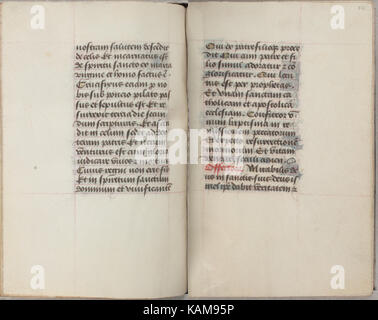 nostram salutem descedit
de celis Et incarnatus est
de spiritu sancto ex maria
virgine et homo factus e
Crucifixus etiam p no
bis sub poncio pilato pas
sus et sepultus est Et re
surrexit tercia die secun
dum scripturas Et ascen
dit in celum sedet ad dex
teram patris Et iterum
venturus est cum gloria
iudicare vivos et mortuos
Cuius regni non erit fi
Et in spiritum sanctum
dominum et vivificantem
Qui ex patre filioque proce
dit Qui cum patre et fi
lio simul adoratur et co
glorificatur Qui locu
tus est per prophetas
Et unam sanctam ca
tholicam et apostolica
ecclesiam Confiteor v
num baptisma in re
missionem peccatorum
Et expecto resurrectione
mortuorum Et vitam
venturi seculi amen
Offertoriu Mirabilis de
us in sanctis suis deus is
rael ipse dabit virtutem et
alamy
Image ID: KAM95P
www.alamy.com